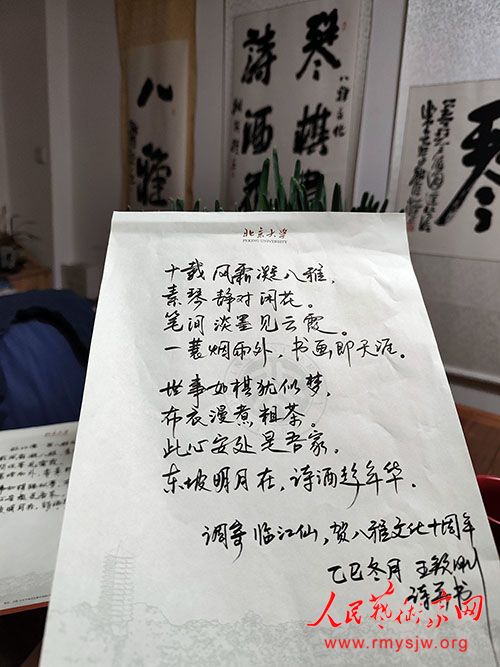 八雅
琴棋
诗酒
八雅文化
琴
北京大学
PEKING UNIVERSITY
十载风霜凝八雅，
素琴静对闲花。
笔间淡墨见云霞。
一蓑烟雨外，书画即天涯。
世事如棋犹似梦，
布衣漫煮粗茶。
此心安处是吾家。
东坡明月在，诗酒趁年华。
调寄临江仙，贺八雅文化十周年
乙巳冬月 王毅刚
诗并书
人民艺术家网
www.rmysjw.org